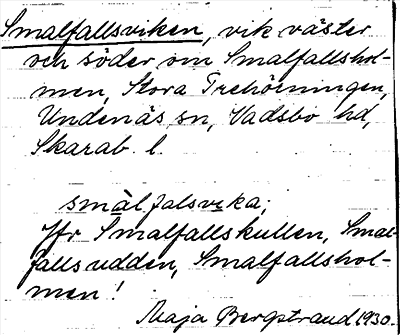 Smalfallsviken, vik väster
och söder om Smalfallshol-
men, Stora Trehörningen,
Undenäs sn, Vadsbo hd,
Skarab. l.
smàlfalsvɩka;
Jfr Smalfallskullen, Smal-
fallsudden, Smalfallshol-
men!
Maja Bergstrand 1930.